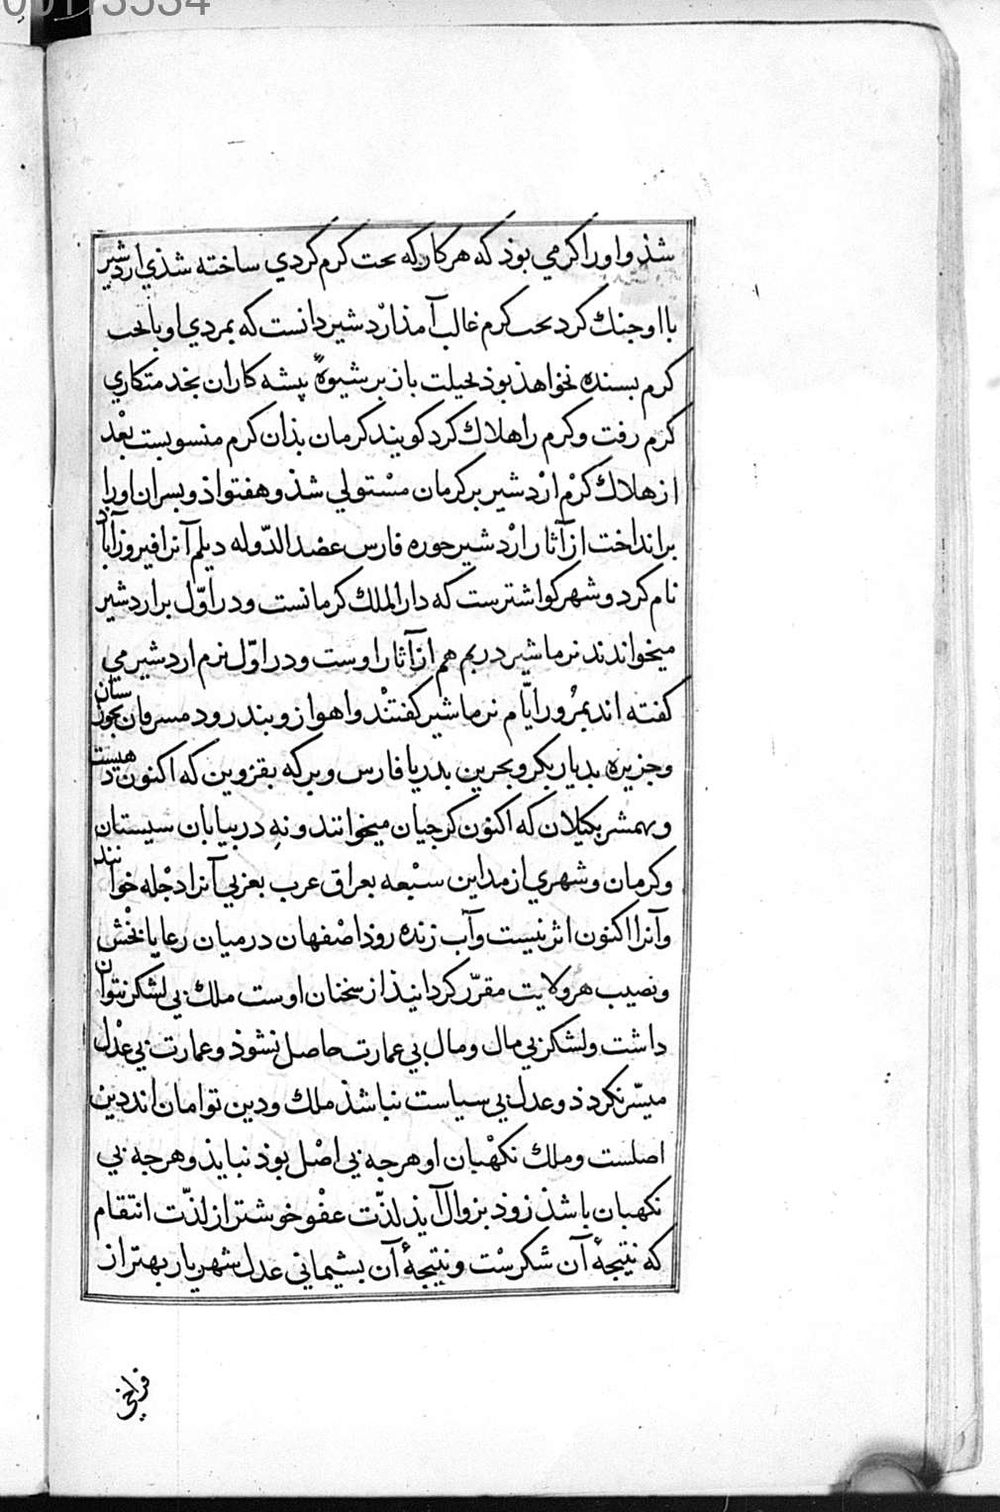 00173534
شذ و او را کرمی بوذ که هر کار که بحت کرم کردی ساخته شذی اردشیر
با او جنك کرد بحت کرم غالب آمذ اردشیر دانست که بمردی او با بحت
کرم بسنده نخواهذ بوذ بحیلت باز بر شیوهٔ پیشه کاران بخدمتکاری
کرم رفت و کرم را هلاك کرد کویند کرمان بذان کرم منسوبست بعْد
از هلاك کرْم ارْدشیر بر کرمان مسْتولی شذ و هفتواذ و بسران او را
برانداخت از آثار ارْدشیر حوره فارس عضد الدّوله دیلم آنرا فیروزآباد
نام کرد و شهر کواشترست که دار الملك کرمانست و در اوّل براردشیر
میخواندند نرماشیر در بم هم از آثار اوست و در اوّل نرم اردشیر می
کفته اند بمُرور ایّام نرماشیر کفتنْد و اهواز و بند رود مسرقان بخوزستان
و جزیره بدیار بکر و بحرین بدریا فارس و برکه بقزوین که اکنون دهیست
و بهمشیر بکیلان که اکنون کرجیان میخوانند و نهِ در بیابان سیستان
و کرمان و شهری از مداین سبْعه بعراق عرب بعزبی آنرا دجْله خوانند
و آنرا اکنون اثر نیست و آب زنده روذ اصْفهان در میان رعایا بخْش
و نصیب هر ولایت مقرّر کردانیذ از سخنان اوست ملك بی لشکر نتوان
داشت و لشکر بی مال و مال بی عمارت حاصل نشوذ و عمارت بی عدْل
میسّر نکردذ و عدل بی سیاست نباشذ ملك و دین توامان اند دین
اصلست و ملك نکهْبان او هرجه بی اصْل بوذ نبایذ و هرجه بی
نکهبان باشذ زوذ بزوال آیذ لذّت عفْو خوشتر از لذّت انتقام
که نتیجهٔ آن شکرسْت و نتیجهٔ آن بشیمانی عدل شهریار بهتر از
فراخی